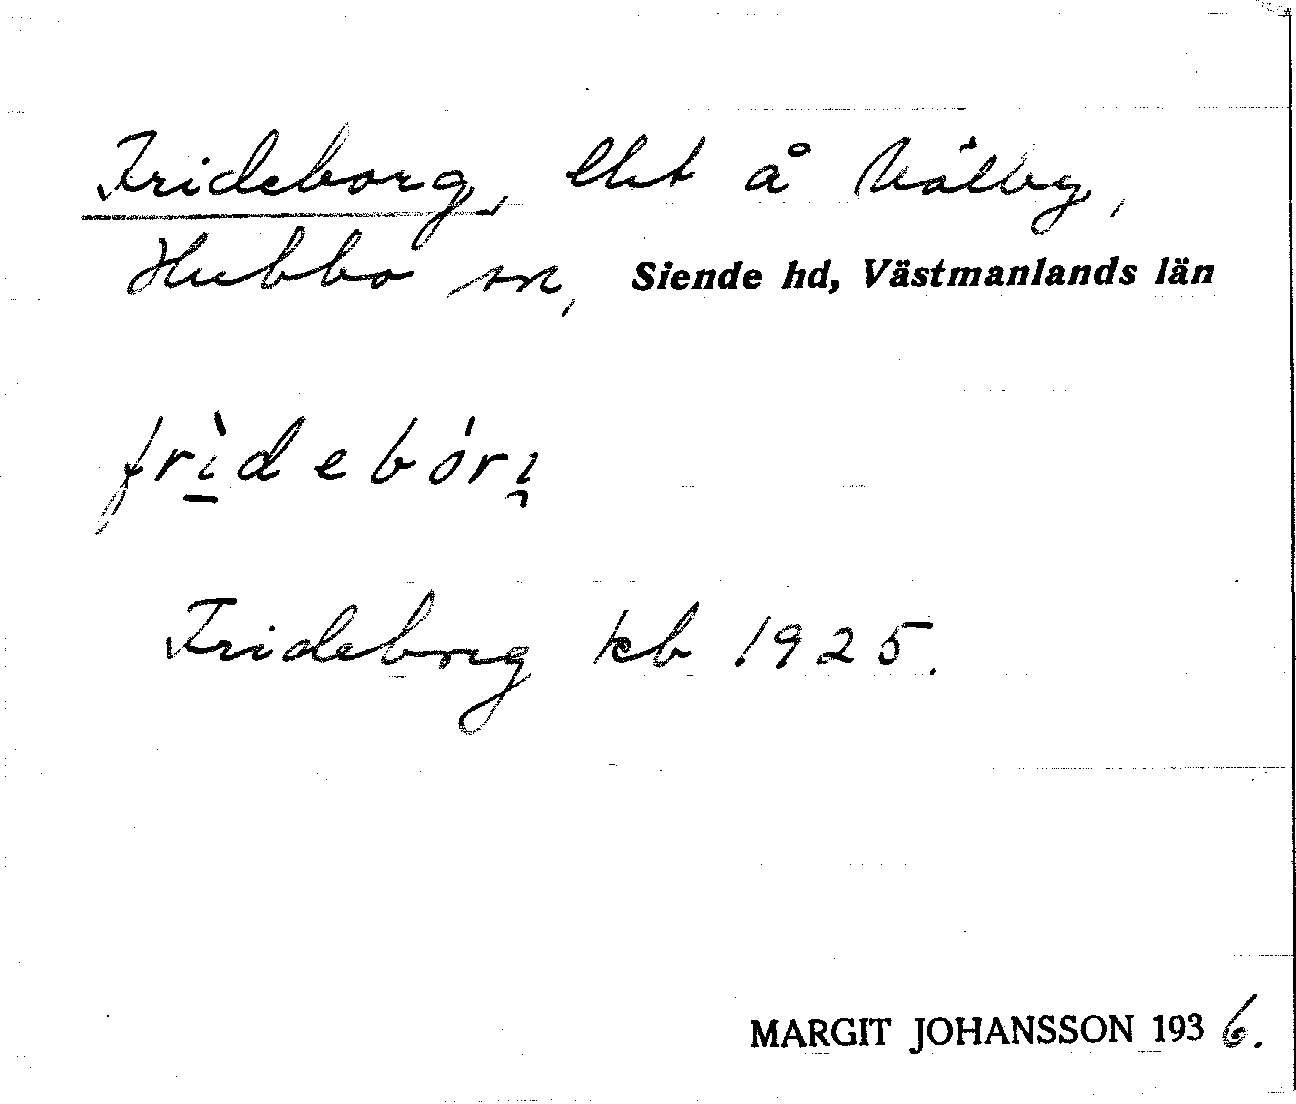 Frideborg, lht å Vålby,
Hubbo sn, Siende hd, Västmanlands län
frìdebórị
Frideborg kb 1925.
MARGIT JOHANSSON 1936.